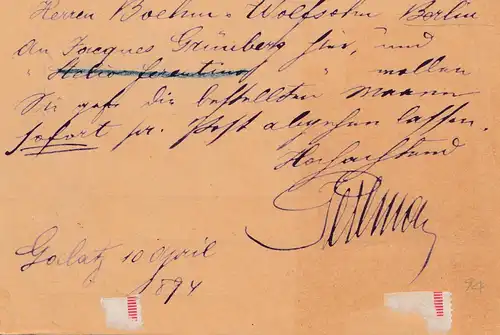 Herren Boehm & Wolfsohn Berlin
An Jacques Grünberg hier, und
" " wollen
Sie gefl. die bestellten Waaren
sofort pr. Post abgehen lassen.
Hochachtend
Galatz 10 April
1894
94